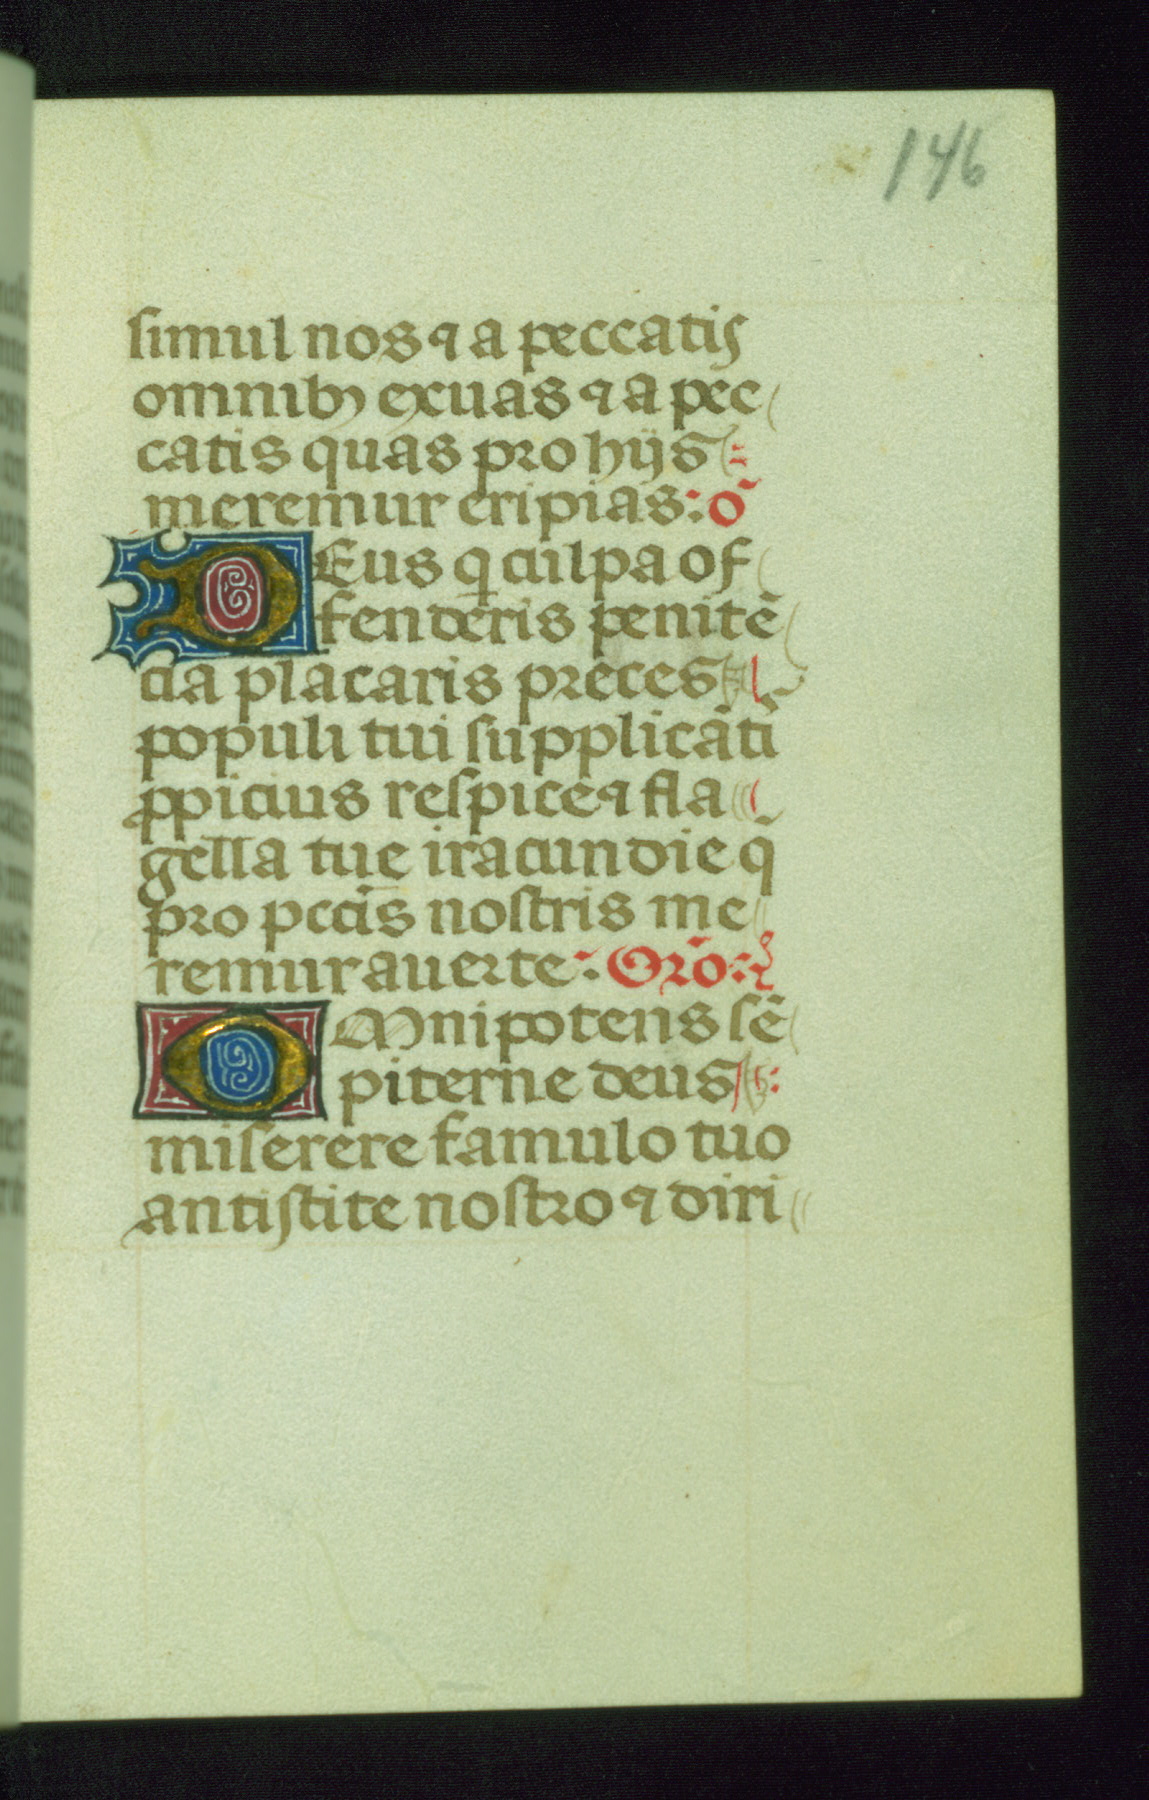 146
simul nos ⁊ a peccatis
omnibꝯ exuas ⁊ a pec
catis quas pro hijs
meremur eripias: õ
DEus q̲ culpa of
fenderis penitẽ
cia placaris preces
populi tui supplicãti
ꝓpicius respice ⁊ fla
gella tue iracundie q̃
pro pccĩs nostris me
remur auerte: Orõ:
OMnipotens sẽ
piterne deus
miserere famulo tuo
antistite nostro ⁊ diri